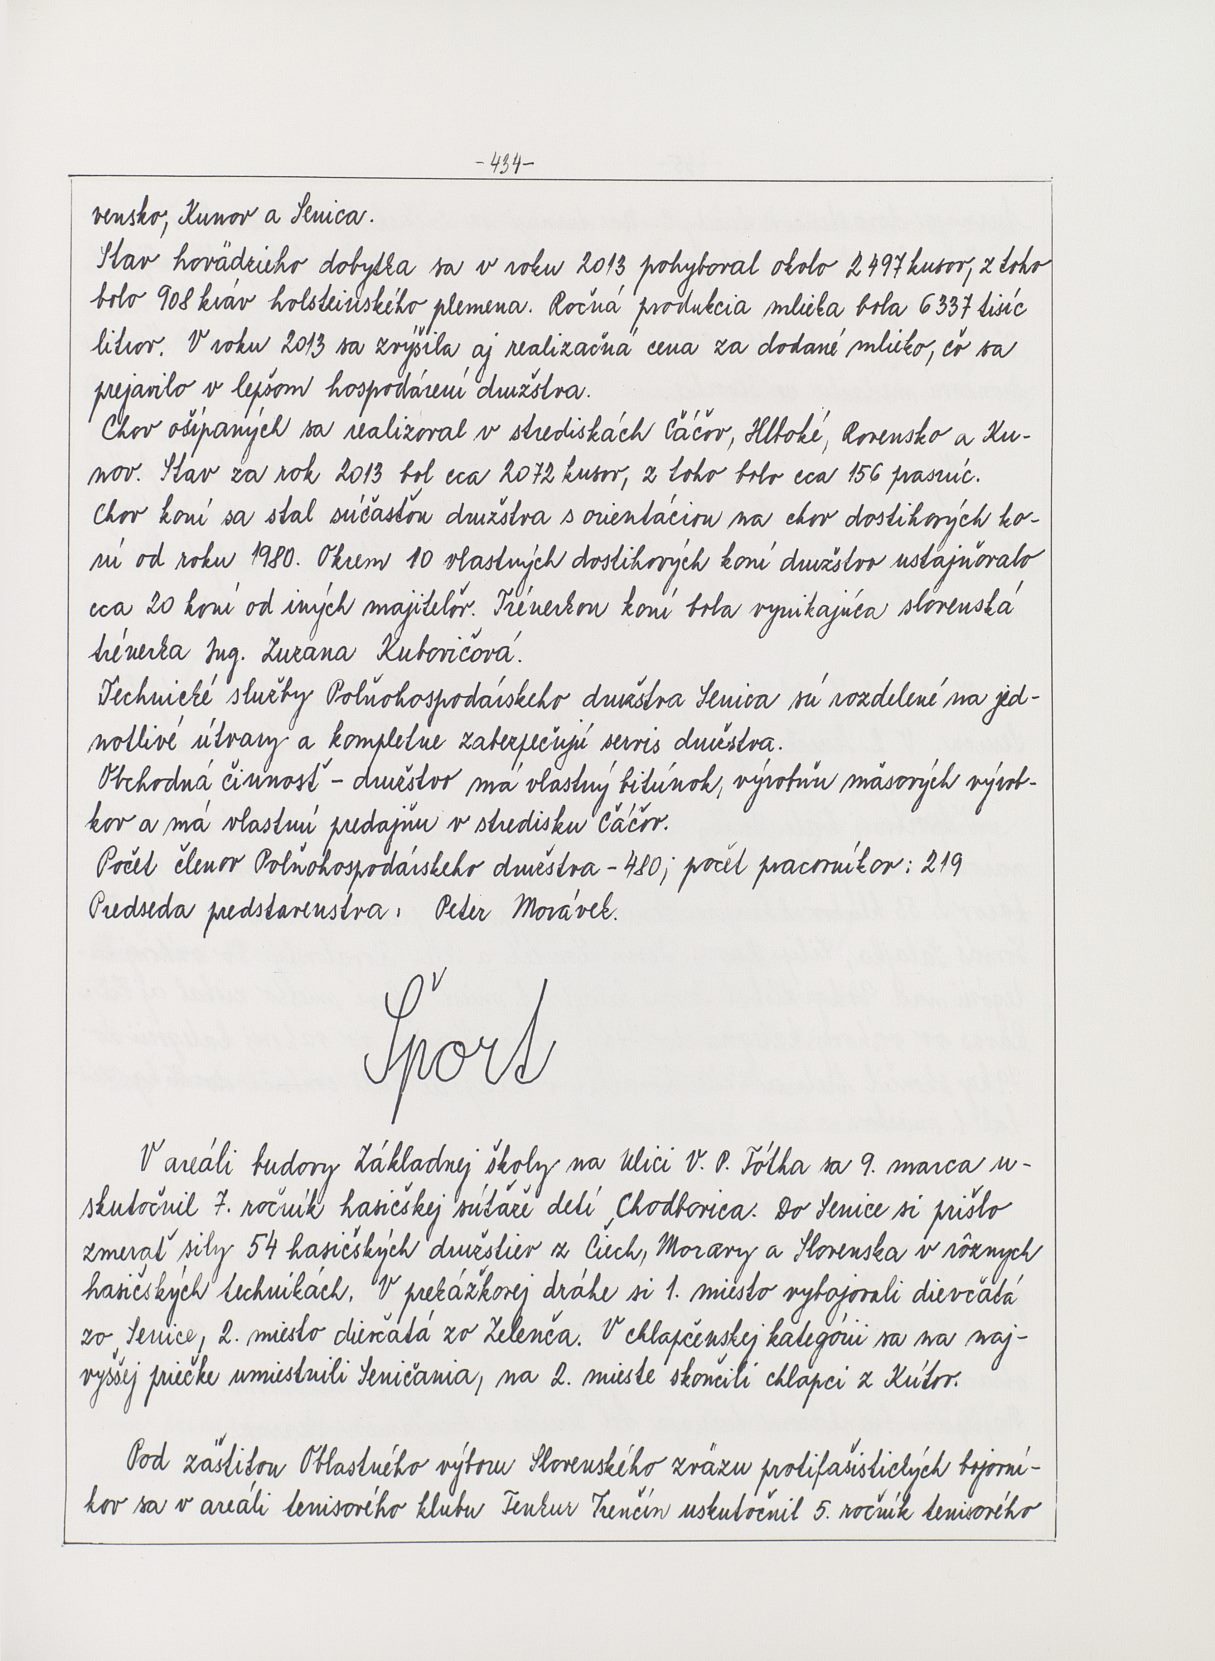 -434-
vensko, Kunov a Senica.
Stav hovädzieho dobytka sa v roku 2013 pohyboval okolo 2497 kusov, z toho
bolo 908 kráv holsteinského plemena. Ročná produkcia mlieka bola 6337 tisíc
litrov. V roku 2013 sa zvýšila aj realizačná cena za dodané mlieko, čo sa
prejavilo v lepšom hospodárení družstva.
Chov ošípaných sa realizoval v strediskách Čáčov, Hlboké, Rovensko a Ku-
nov. Stav za rok 2013 bol cca 2072 kusov, z toho bolo cca 156 prasníc.
Chov koní sa stal súčasťou družstva s orientáciou na chov dostihových ko-
ní od roku 1980. Okrem 10 vlastných dostihových koní družstvo ustajňovalo
cca 20 koní od iných majiteľov. Trénerkou koní bola vynikajúca slovenská
trénerka Ing. Zuzana Kubovičová.
Technické služby Poľnohospodárskeho družstva Senica sú rozdelené na jed-
notlivé útvary a kompletne zabezpečujú servis družstva.
Obchodná činnosť - družstvo má vlastný bitúnok, výrobňu mäsových výrob-
kov a má vlastnú predajňu v stredisku Čáčov.
Počet členov Poľnohospodárskeho družstva - 480; počet pracovníkov: 219
Predseda predstavenstva: Peter Morávek.
Šport
V areáli budovy Základnej školy na Ulici V. P. Tótha sa 9. marca u-
skutočnil 7. ročník hasičskej súťaže detí "Chodbovica." Do Senice si prišlo
zmerať sily 54 hasičských družstiev z Čiech, Moravy a Slovenska v rôznych
hasičských technikách. V prekážkovej dráhe si 1. miesto vybojovali dievčatá
zo Senice, 2. miesto dievčatá zo Zelenča. V chlapčenskej kategórii sa na naj-
vyššej priečke umiestnili Seničania, na 2. mieste skončili chlapci z Kútov.
Pod záštitou Oblastného výboru Slovenského zväzu protifašistických bojovní-
kov sa v areáli tenisového klubu Tenkur Trenčín uskutočnil 5. ročník tenisového